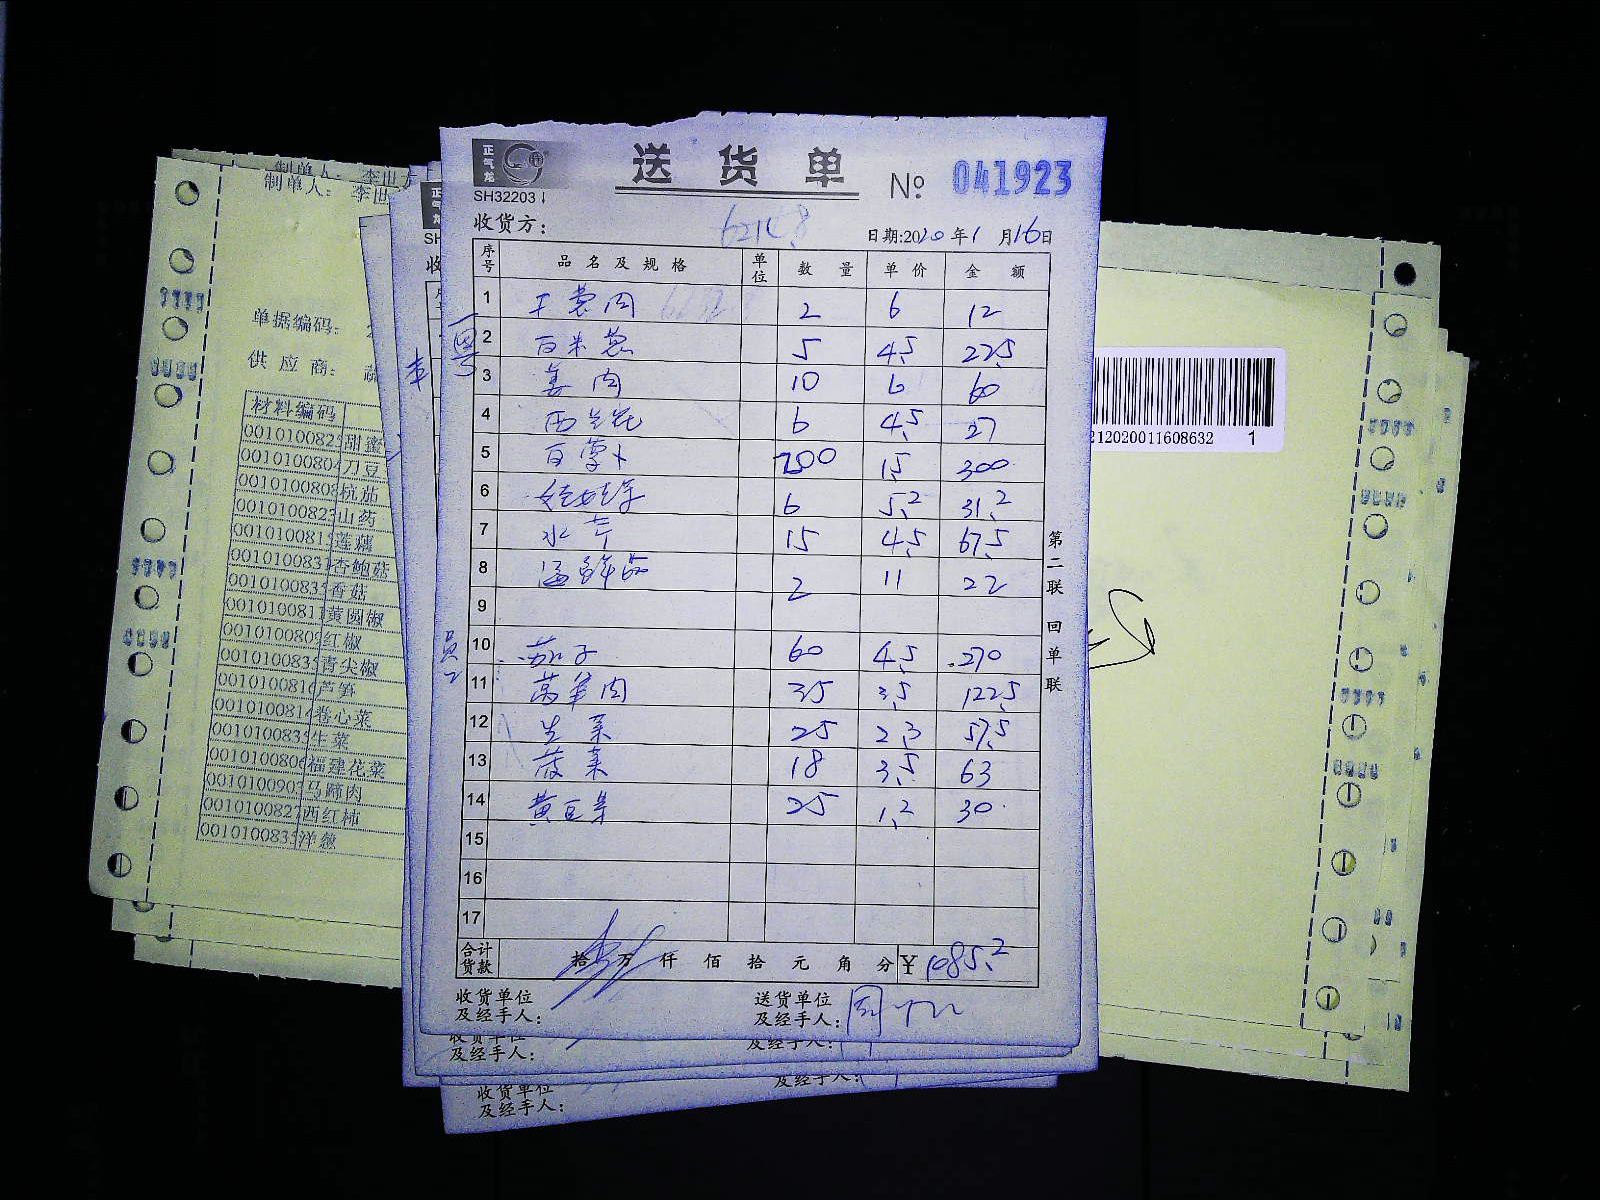 制单人： 李世方
制单人： 李世
单据编码：
供 应 商： 蔬
材料编码
0010100825 甜蜜
0010100804 刀豆
0010100808 杭茄
0010100823 山药
0010100815 莲藕
0010100831 杏鲍菇
0010100835 香菇
0010100811 黄圆椒
0010100809 红椒
0010100835 青尖椒
0010100816 芦笋
0010100814 卷心菜
0010100835 生菜
0010100806 福建花菜
0010100903 马蹄肉
0010100827 西红柿
0010100835 洋葱
正气龙
SH32203
送 货 单
№ 041923
收货方：
日期:2020年1月16日
序号 品 名 及 规 格 单位 数 量 单 价 金 额
1 干葱肉 2 6 12
2 百米葱 5 4.5 22.5
3 姜肉 10 6 60
4 西兰花 6 4.5 27
5 白萝卜 200 1.5 300
6 娃娃菜 6 5.2 31.2
7 水芹 15 4.5 67.5
8 2 11 22
9
10 茄子 60 4.5 270
11 莴笋肉 35 3.5 122.5
12 生菜 25 2.3 57.5
13 菠菜 18 3.5 63
14 黄豆芽 25 1.2 30
15
16
17
合计货款 拾 万 仟 佰 拾 元 角 分 ¥ 1085.2
收货单位及经手人：
送货单位及经手人：
第二联 回单联
收货单位
及经手人：
及经手人：
收货单位
及经手人：
及经手人：
212020011608632 1